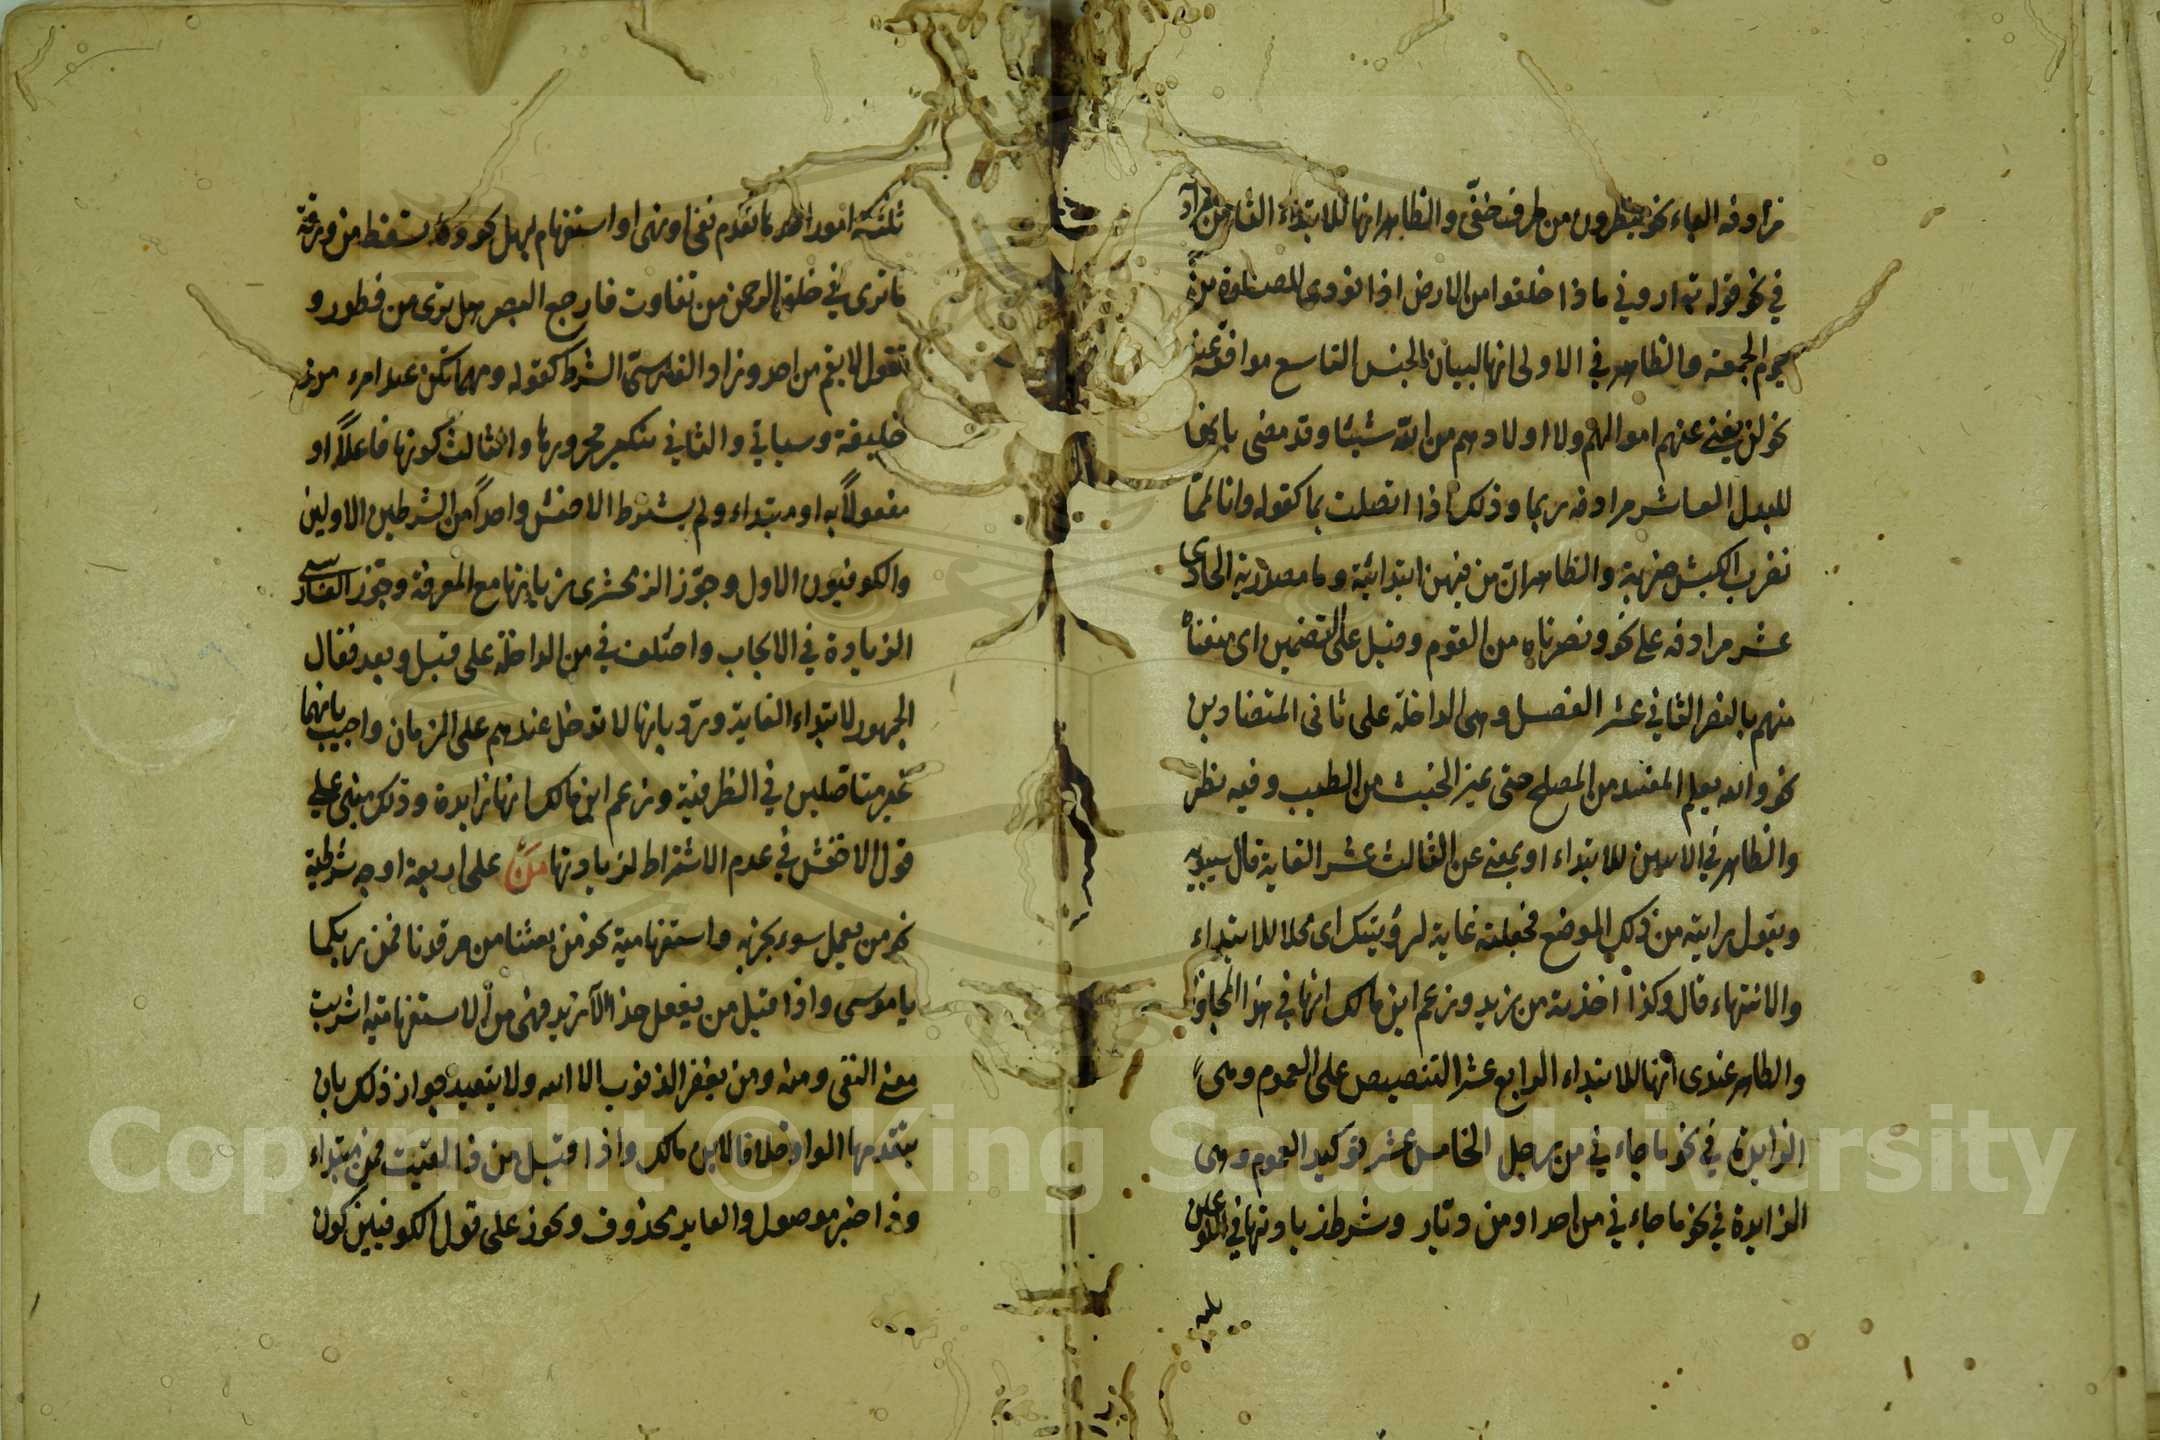 مرادفه الباء نحو ينظرون من طرف خفى والظاهر انها للابتداء الثامن مراد
في نحو قوله تع ارونى ماذا خلقوا من الارض اذا نودى للصلوة من
يوم الجمعة والظاهر في الاولى انها لبيان الجنس التاسع موافقة عند
نحو لن يغنى عنهم اموالهم ولا اولادهم من الله شيئا وقد مضى بانها
للبدل العاشر مرادفه ربما وذلك اذا اتصلت بما كقوله وانا لمما
نضرب الكبش ضربة والظاهر ان من فيهن ابتدائية وما مصدرية الحادى
عشر مرادفه على نحو ونصرناه من القوم وقيل على التضمين اى منعناه
منهم بالنصر الثاني عشر الفصل وهى الداخلة على ثانى المتضادين
نحو والله يعلم المفسد من المصلح حتى يميز الخبيث من الطيب وفيه نظر
والظاهر في الايتين للابتداء او بمعنى عن الثالث عشر الغاية قال سيبويه
وتقول رايته من ذلك الموضع فجعلته غاية لرؤيتك اى محلا للابتداء
والانتهاء قال وكذا اخذته من زيد وزعم ابن مالك انها في هذا للمجاوزة
والظاهر عندى انها للابتداء الرابع عشر التنصيص على العموم وهى
الزايدة في نحو ما جاءني من رجل الخامس عشر توكيد العموم وهى
الزايدة في نحو ما جاءني من احد او من ديار وشرط زيادتها في النوعين
ثلثة
ثلثة امور احدها تقدم نفى او نهى او استفهام بهل نحو وما تسقط من ورقة
ما ترى في خلق الرحمن من تفاوت فارجع البصر هل ترى من فطور و
تقول لا يقم من احد وزاد الفارسى الشرط كقوله ومهما تكن عند امرء من
خليقة وسياتي والثاني تنكير مجرورها والثالث كونها فاعلاً او
مفعولاً به او مبتداء ولم يشترط الاخفش واحداً من الشرطين الاولين
والكوفيون الاول وجوّز الزمخشرى زيادتها مع المعرفة وجوّز الفارسى
الزيادة في الايجاب واختلف في من الداخلة على قبل وبعد فقال
الجمهور لابتداء الغاية وردّ بانها لا تدخل عندهم على الزمان واجيب بانهما
غير متاصلين في الظرفية وزعم ابن مالك انها زايدة وذلك مبنى على
قول الاخفش في عدم الاشتراط لزيادتها مَن على اربعة اوجه شرطية
نحو من يعمل سوء يجز به واستفهامية نحو من بعثنا من مرقدنا فمن ربكما
يا موسى واذا قيل من يفعل هذا الا زيد فهى من الاستفهامية اشربت
معنى النفى ومنه ومن يغفر الذنوب الا الله ولا يتقيد جواز ذلك بان
يتقدمها الواو خلافا لابن مالك واذا قيل من ذا لقيت فمن مبتداء
وذا خبر موصول والعايد محذوف ويجوز على قول الكوفيين كون
Copyright © King Saud University